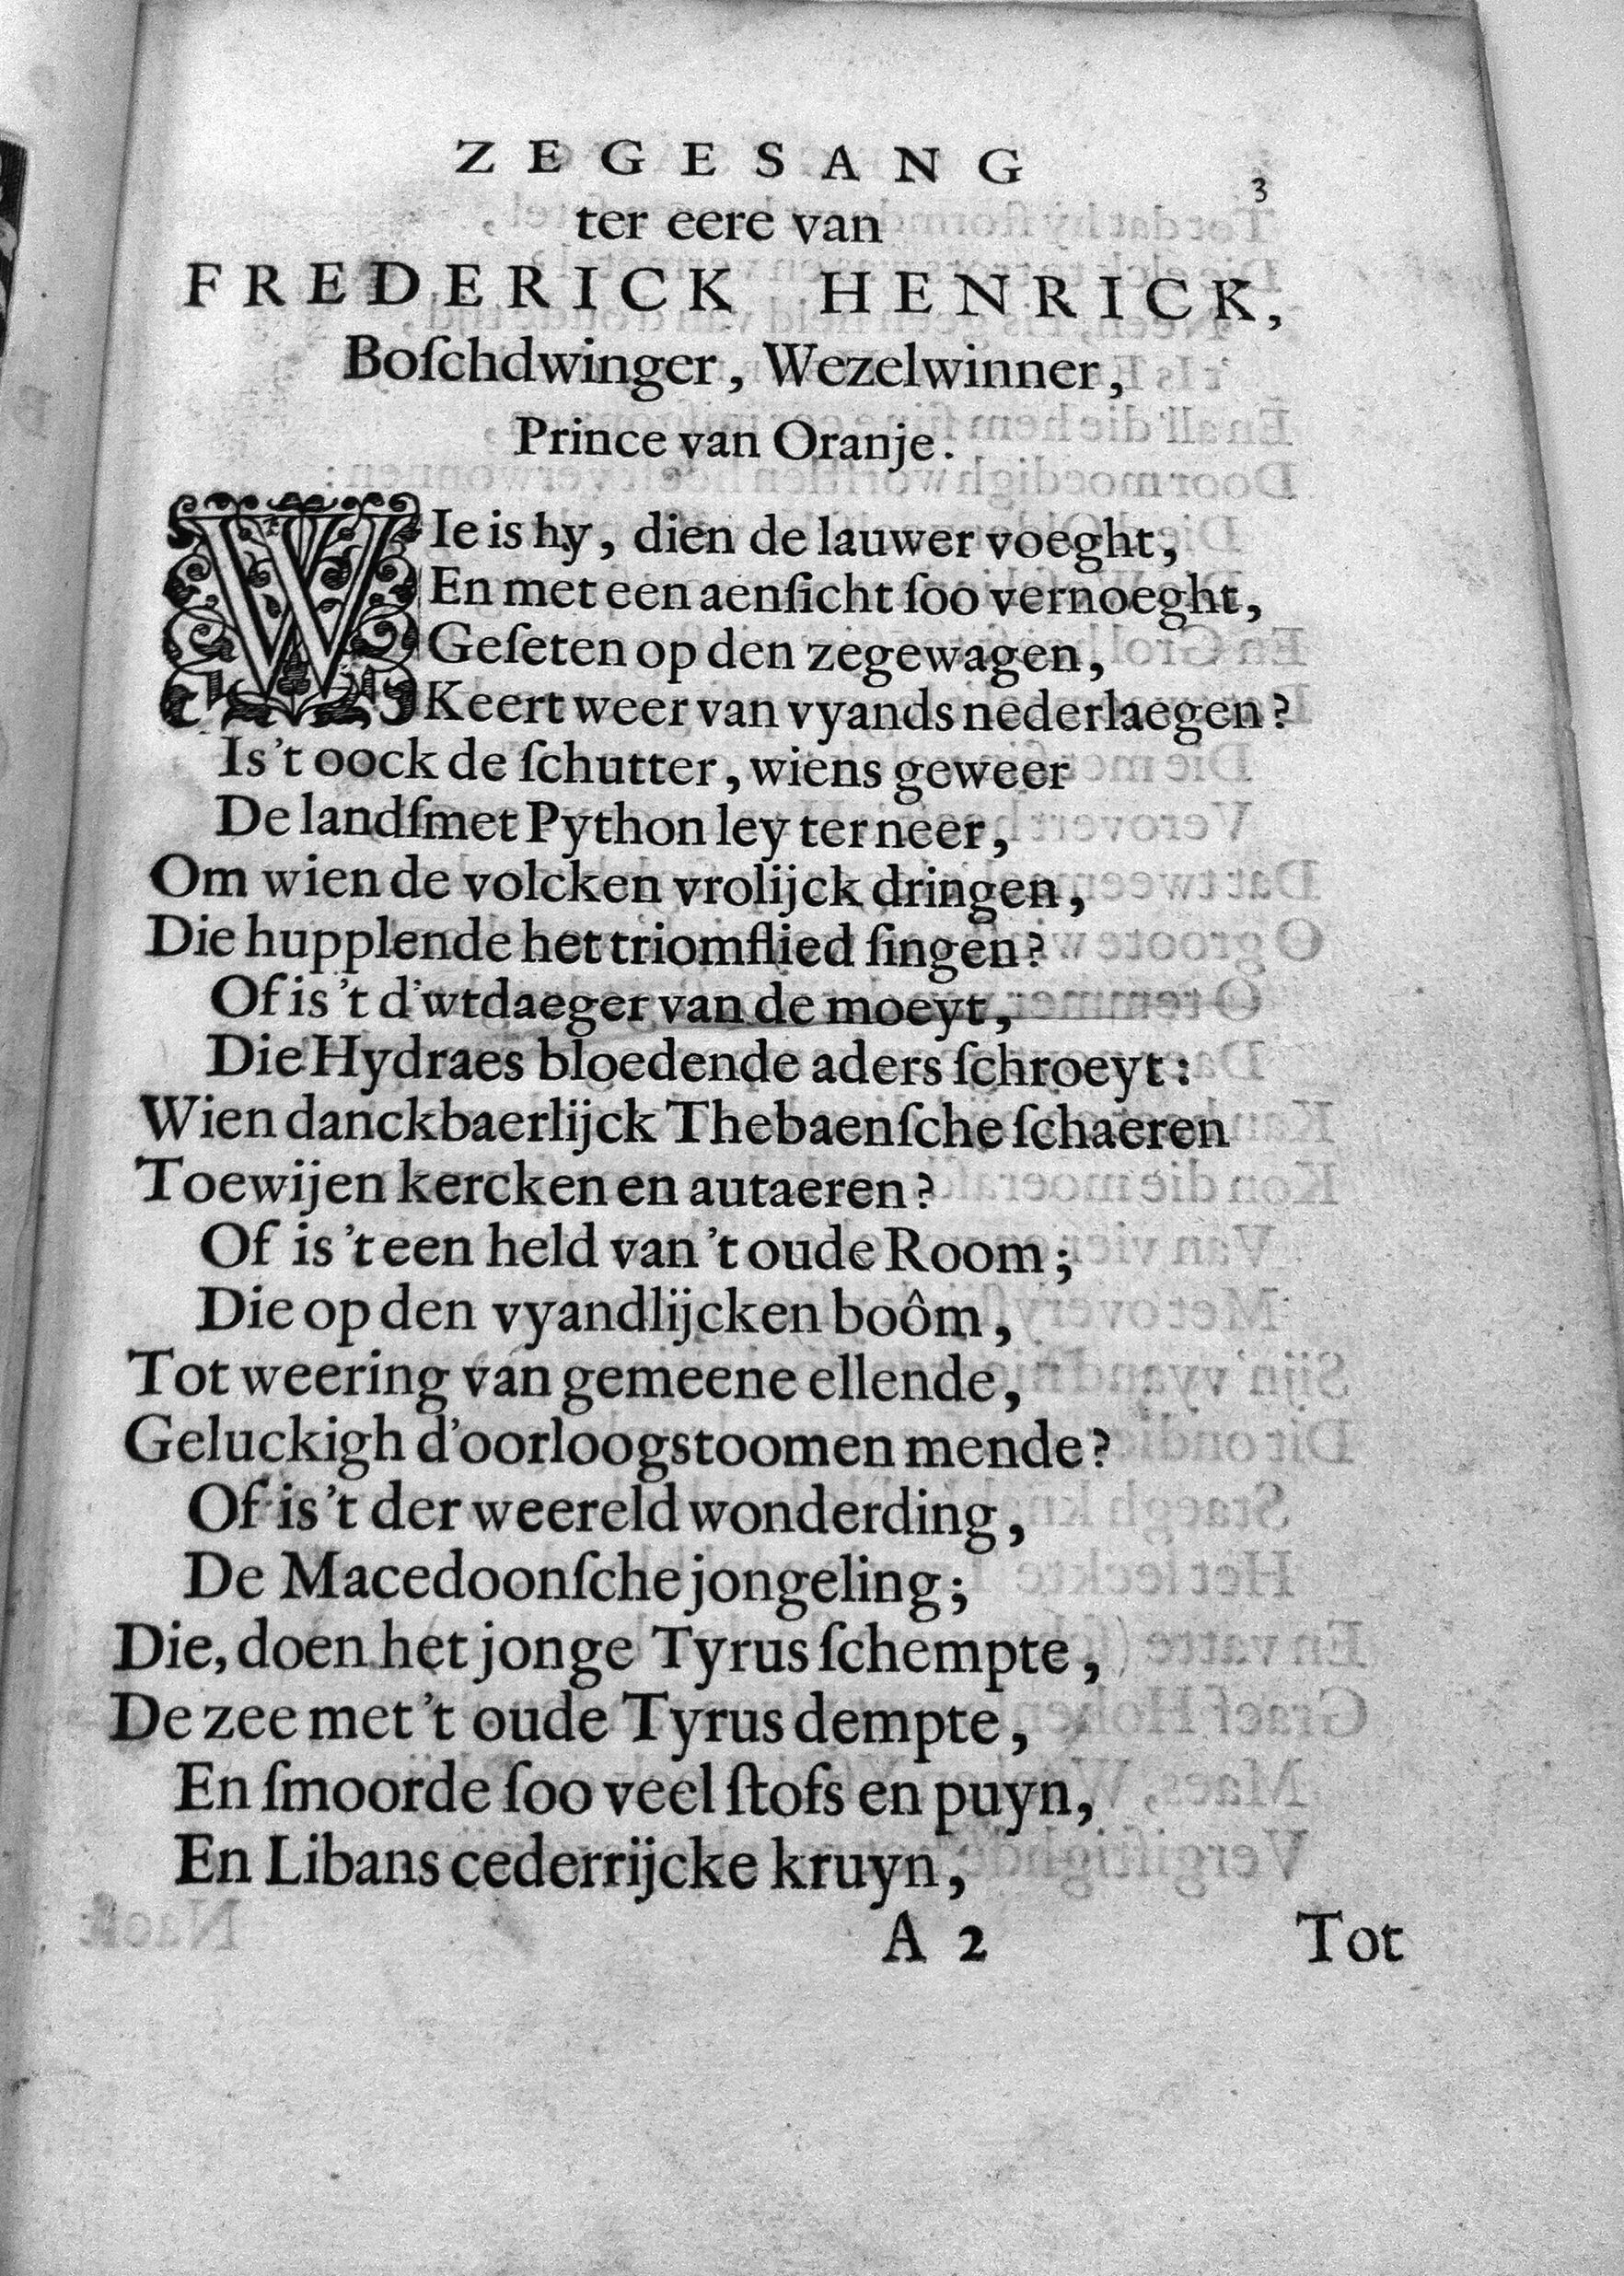 3
ZEGESANG
ter eere van
FREDERICK HENRICK,
Boſchdwinger, Wezelwinner,
Prince van Oranje.
WIe is hy, dien de lauwer voeght,
En met een aenſicht ſoo vernoeght,
Geſeten op den zegewagen,
Keert weer van vyands nederlaegen?
Is't oock de ſchutter, wiens geweer
De landſmet Python ley ter neer,
Om wien de volcken vrolijck dringen,
Die hupplende het triomflied ſingen?
Of is 't d'wtdaeger van de moeyt,
Die Hydraes bloedende aders ſchroeyt:
Wien danckbaerlijck Thebaenſche ſchaeren
Toewijen kercken en autaeren?
Of is 't een held van 't oude Room;
Die op den vyandlijcken boôm,
Tot weering van gemeene ellende,
Geluckigh d'oorloogstoomen mende?
Of is't der weereld wonderding,
De Macedoonſche jongeling;
Die, doen het jonge Tyrus ſchempte,
De zee met 't oude Tyrus dempte,
En ſmoorde ſoo veel ſtofs en puyn,
En Libans cederrijcke kruyn,
A 2 Tot